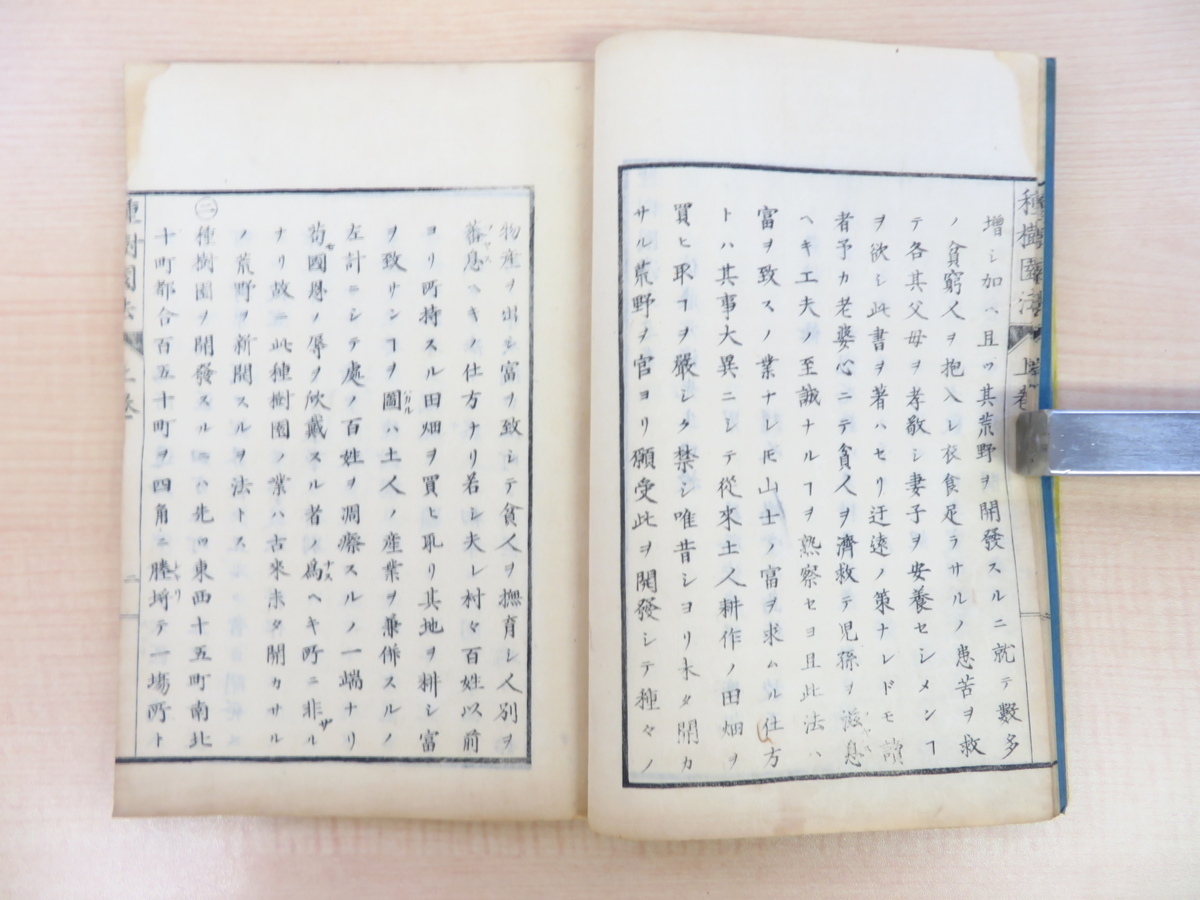 種樹園法
上卷
增シ加ヘ且ツ其荒野ヲ開發スルニ就テ數多
ノ貧窮人ヲ抱入レ衣食足ラサルノ患苦ヲ救
テ各其父母ヲ孝敬シ妻子ヲ安養セシメンヿ
ヲ欲シ此書ヲ著ハセリ迂遠ノ策ナレドモ讀
者予カ老婆心ニテ貧人ヲ濟救テ兒孫ヲ滋息
ヘキ工夫ノ至誠ナルヿヲ熟察セヨ且此法ハ
富ヲ致スノ業ナレ𪜈山士ノ富ヲ求ムル仕方
トハ其事大異ニシテ從來土人耕作ノ田畑ヲ
買ヒ取ヿヲ嚴シク禁シ唯昔シヨリ未タ開カ
サル荒野ノ官ヨリ願受此ヲ開發シテ種々ノ
物產ヲ出シ富ヲ致シテ貧人ヲ撫育シ人別ヲ
蕃息ヘキノ仕方ナリ若シ夫レ村々百姓以前
ヨリ所持スル田畑ヲ買ヒ取リ其地ヲ耕シ富
ヲ致サンヿヲ圖ハ土人ノ産業ヲ兼併スルノ
左計ニシテ處ノ百姓ヲ凋瘵スルノ一端ナリ
苟モ國恩ノ辱ヲ欣戴スル者ノ爲ヘキ所ニ非ル
ナリ故ニ此種樹園ノ業ハ古來未タ開カサル
ノ荒野ヲ新開スルヲ法トス
㊁種樹園ヲ開發スルニハ先ツ東西十五町南北
十町都合百五十町ヲ四角ニ塍埒テ一場所ト
種樹園法
上卷
二